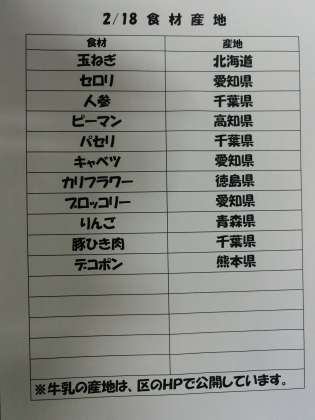 2/18 食材産地
食材 産地
玉ねぎ 北海道
セロリ 愛知県
人参 千葉県
ピーマン 高知県
パセリ 千葉県
キャベツ 愛知県
カリフラワー 徳島県
ブロッコリー 愛知県
りんご 青森県
豚ひき肉 千葉県
デコポン 熊本県
※牛乳の産地は、区のHPで公開しています。